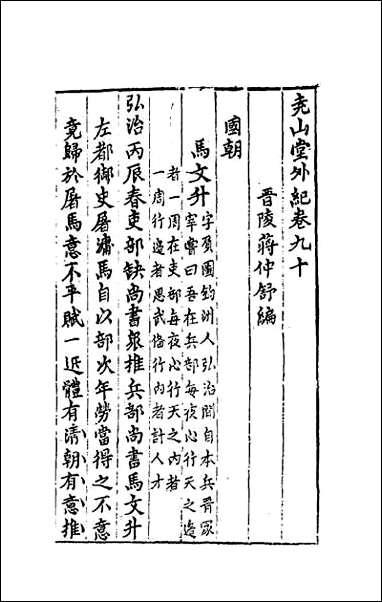 堯山堂外紀卷九十
晉陵蔣仲舒編
國朝
馬文升
字負圖鈞州人弘治間自本兵晉冢
宰嘗曰吾在兵部每夜心行天之邊
者一周在吏部每夜心行天之內者
一周行邊者思武俻行內者計人才
弘治丙辰春吏部缺尚書衆推兵部尚書馬文升
左都御史屠滽馬自以部次年勞當得之不意
竟歸於屠馬意不平賦一近體有清朝有意推